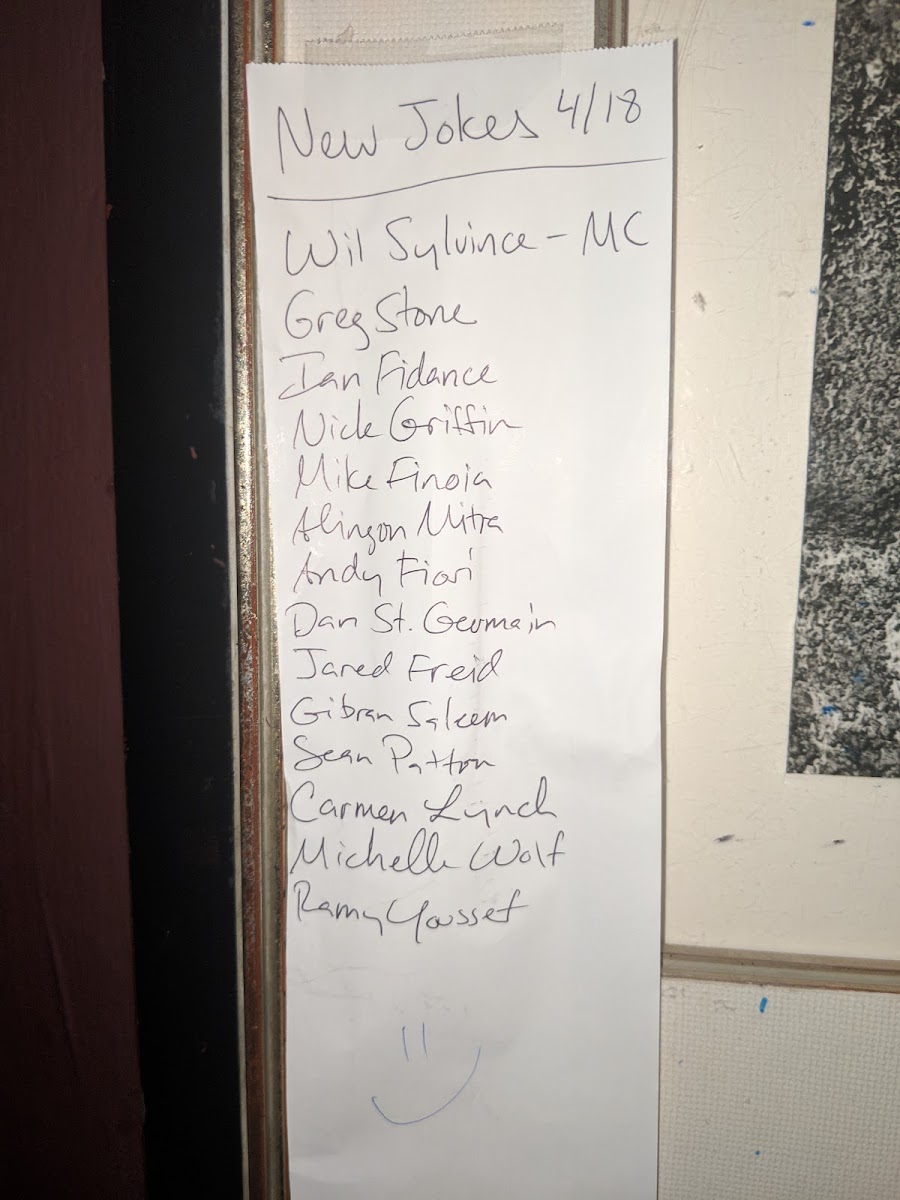 New Jokes 4/18
Wil Sylvince - MC
Greg Stone
Ian Fidance
Nick Griffin
Mike Finoia
Alingon Mitra
Andy Fiori
Dan St. Germain
Jared Freid
Gibran Saleem
Sean Patton
Carmen Lynch
Michelle Wolf
Ramy Youssef